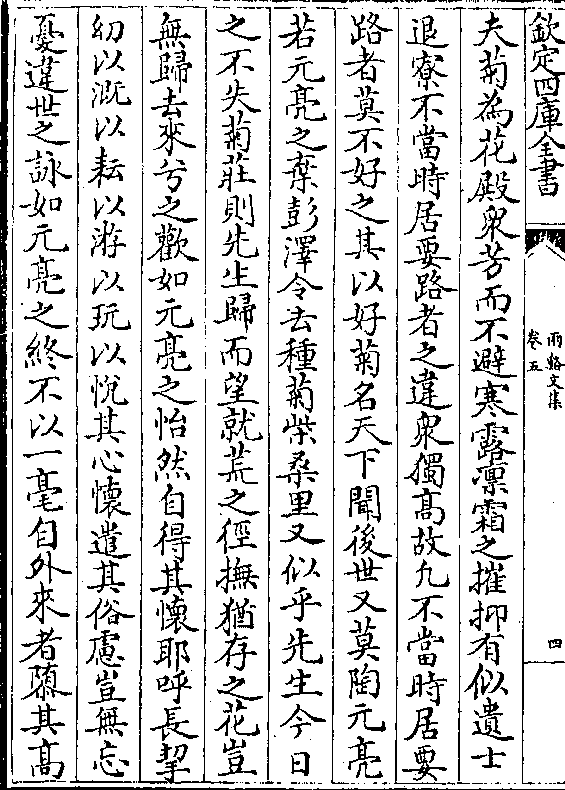 欽定四庫全書
兩谿文集
卷五
四
夫菊為花殿衆芳而不避寒露凜霜之摧抑有似遺士
退寮不當時居要路者之違衆獨髙故凢不當時居要
路者莫不好之其以好菊名天下聞後世又莫陶元亮
若元亮之棄彭澤令去種菊柴桑里又似乎先生今日
之不失菊莊則先生歸而望就荒之徑撫猶存之花豈
無歸去來兮之歡如元亮之怡然自得其懷耶呼長挈
幼以溉以耘以游以玩以恱其心懷遣其俗慮豈無忘
憂違世之詠如元亮之終不以一毫自外來者隳其髙